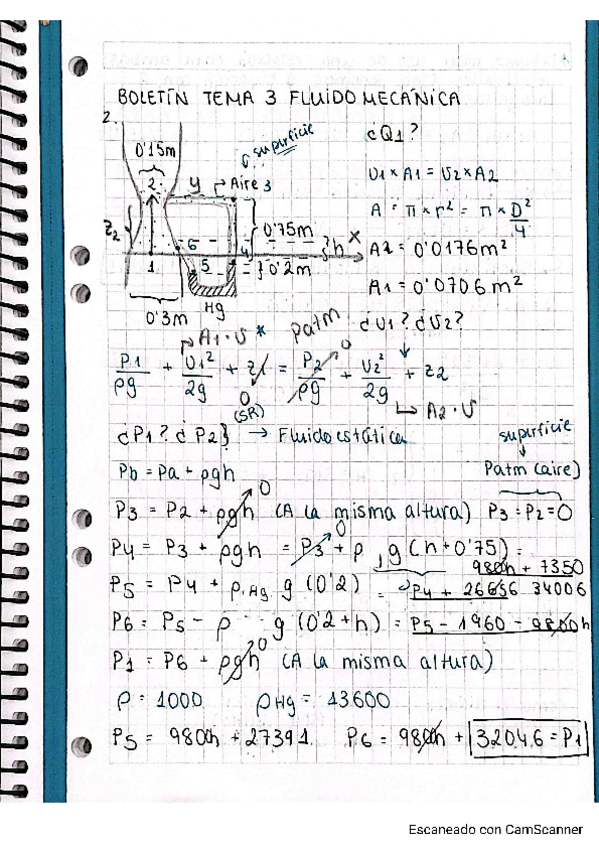 BOLETÍN TEMA 3 FLUIDOMECÁNICA
2.
0'15m
superficie
¿Q1?
2
y
Aire 3
v1 × A1 = v2 × A2
z2
0'75m
h
x
A = π × r² = π × D²/4
6
4
A2 = 0'0176m²
1
5
0'2m
A1 = 0'0706m²
0'3m
Hg
A1 · v *
Patm
¿v1? ¿v2?
P1/ρg + v1²/2g + z1 = P2/ρg + v2²/2g + z2
0
0
(SR)
A2 · v
¿P1? ¿P2} → Fluidoestática
superficie
Pb = Pa + ρgh
Patm (aire)
P3 = P2 + ρgh 0 (A la misma altura) P3 = P2 = 0
P4 = P3 + ρgh = P3 0 + ρ g (h + 0'75) =
9800h + 7350
P5 = P4 + ρHg g (0'2) = P4 + 26656 34006
P6 = P5 - ρ g (0'2 + h) = P5 - 1960 - 9800h
P1 = P6 + ρgh 0 (A la misma altura)
ρ = 1000 ρHg = 13600
P5 = 9800h + 27391 P6 = 9800h + 32046 = P1
Escaneado con CamScanner